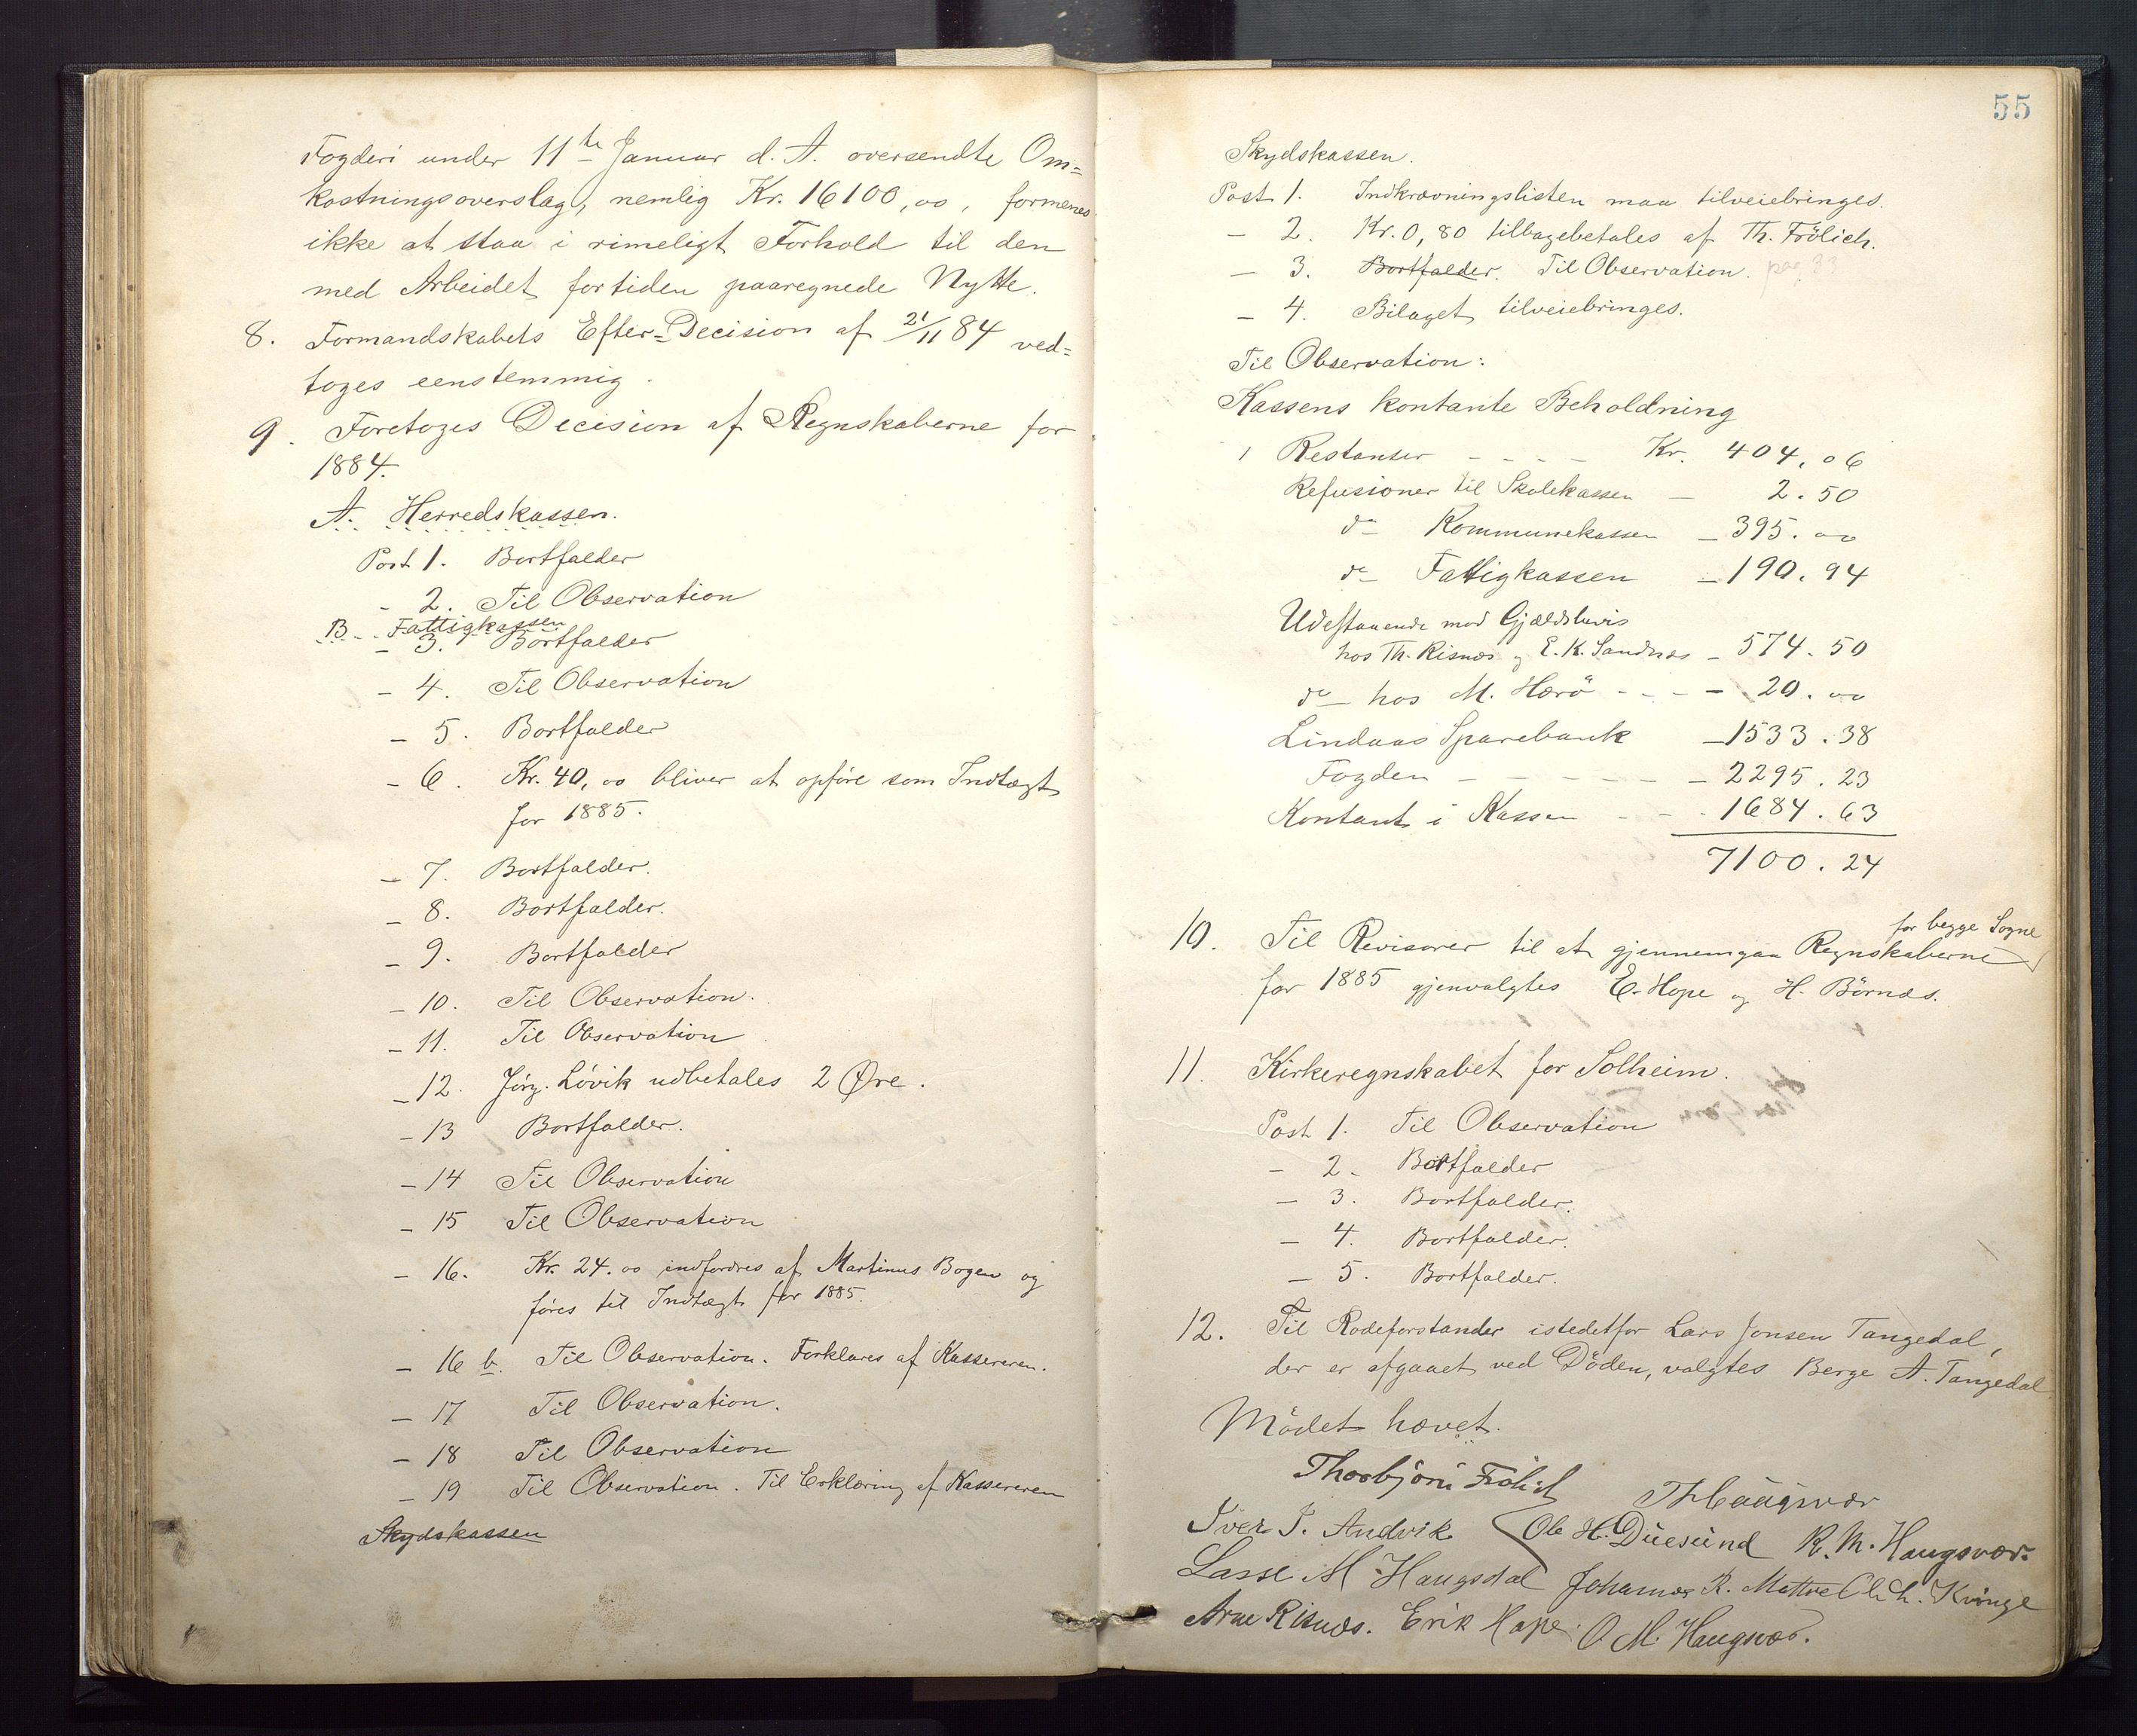 Fogderi under 11te Januar d. A. oversendte Om=
kostningsoverslag, nemlig Kr. 16100,00, formenes
ikke at staa i rimeligt Forhold til den
med Arbeidet fortiden paaregnede Nytte.
8. Formandskabets Efter=Decision af 21/11 84 ved=
toges eenstemmig.
9. Foretoges Decision af Regnskaberne for
1884.
A. Herredskassen.
Post 1. Bortfalder
- 2. Til Observation
B. Fattigkassen
- 3. Bortfalder
- 4. Til Observation
- 5. Bortfalder
- 6. Kr. 40,00 bliver at opføre som Indtægt
for 1885.
- 7. Bortfalder.
- 8. Bortfalder.
- 9. Bortfalder
- 10. Til Observation.
- 11. Til Observation
- 12. Jörg. Lövik udbetales 2 Øre.
- 13 Bortfalder.
- 14 Til Observation
- 15 Til Observation
- 16. Kr. 24.00 indfordres af Martinus Bogen og
föres til Indtægt for 1885.
- 16 b. Til Observation. Forklares af Kassereren.
- 17 Til Observation.
- 18 Til Observation
- 19 Til Observation. Til Erklæring af Kassereren
Skydskassen
55
Skydskassen.
Post 1. Indkrævningslisten maa tilveiebringes.
- 2. Kr. 0,80 tilbagebetales af Th. Frölich.
- 3. Bortfalder. Til Observation. pag. 93
- 4. Bilaget tilveiebringes.
Til Observation:
Kassens kontante Beholdning
1 Restanser - - - - Kr. 404,06
Refusioner til Skolekassen - 2.50
do Kommunekassen - 395.00
do Fattigkassen - 190.94
Udestaaende mod Gjældsbevis
hos Th. Risnæs og E. K. Sandnæs - 574.50
do hos M. Herö - - - - 20.00
Lindaas Sparebank - 1533.38
Fogden - - - - - - 2295.23
Kontant i Kassen - - - 1684.63
7100.24
for begge Sogne
10. Til Revisorer til at gjennemgaa Regnskaberne
for 1885 gjenvalgtes E. Hope og H. Börnæs.
11. Kirkeregnskabet for Solheim.
Post 1. Til Observation
- 2. Bortfalder
- 3. Bortfalder.
- 4. Bortfalder.
- 5. Bortfalder.
12. Til Rodeforstander istedetfor Lars Jonsen Tangedal,
der er afgaaet ved Döden, valgtes Berge A. Tangedal
Mödet hævet.
Thorbjörn Frölich Th Haugsvær
Iver I. Andvik Ole H. Düesünd R. M. Haugsvær.
Lasse M Haugsdal Johannes R. Mattre Ole L. Kvinge
Arne Risnæs. Erik Hope. O M. Haugsvær.